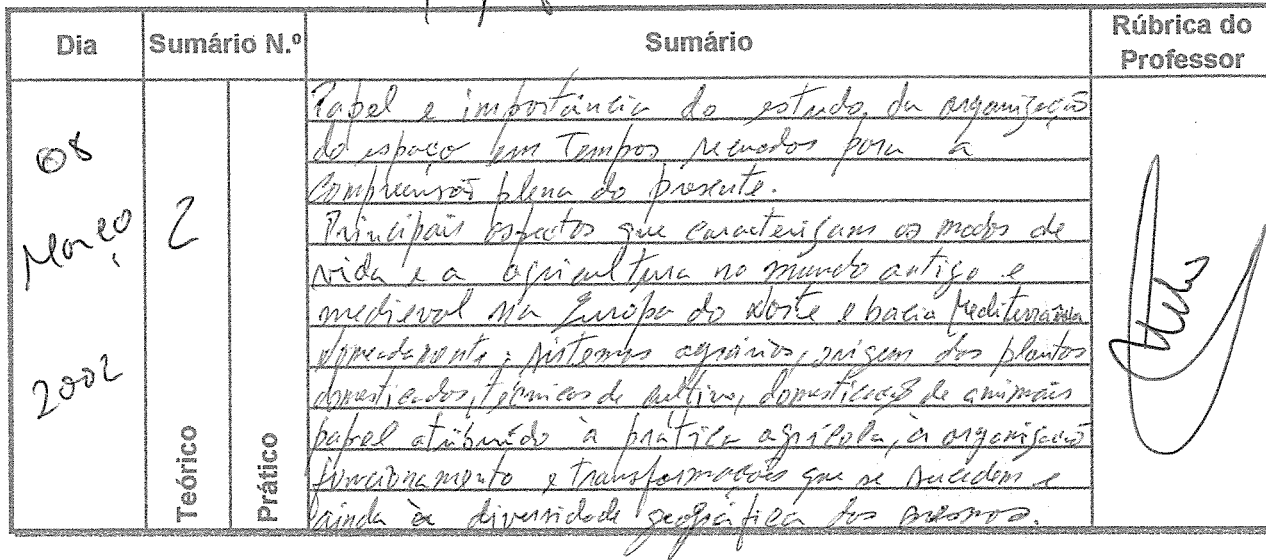 Dia Sumário N.º Sumário Rúbrica do Professor
08 Março 2002
2
Teórico
Prático
Papel e importância do estudo da organização
do espaço em Tempos recuados para a
compreensão plena do presente.
Principais aspectos que caracterizam os modos de
vida e a agricultura no mundo antigo e
medieval na Europa do Norte e bacia Mediterrânea
nomeadamente; sistemas agrários, origem das plantas
domesticadas, técnicas de cultivo, domesticação de animais
papel atribuído à prática agrícola, à organização
funcionamento e transformações que se sucedem e
ainda à diversidade geográfica dos mesmos.